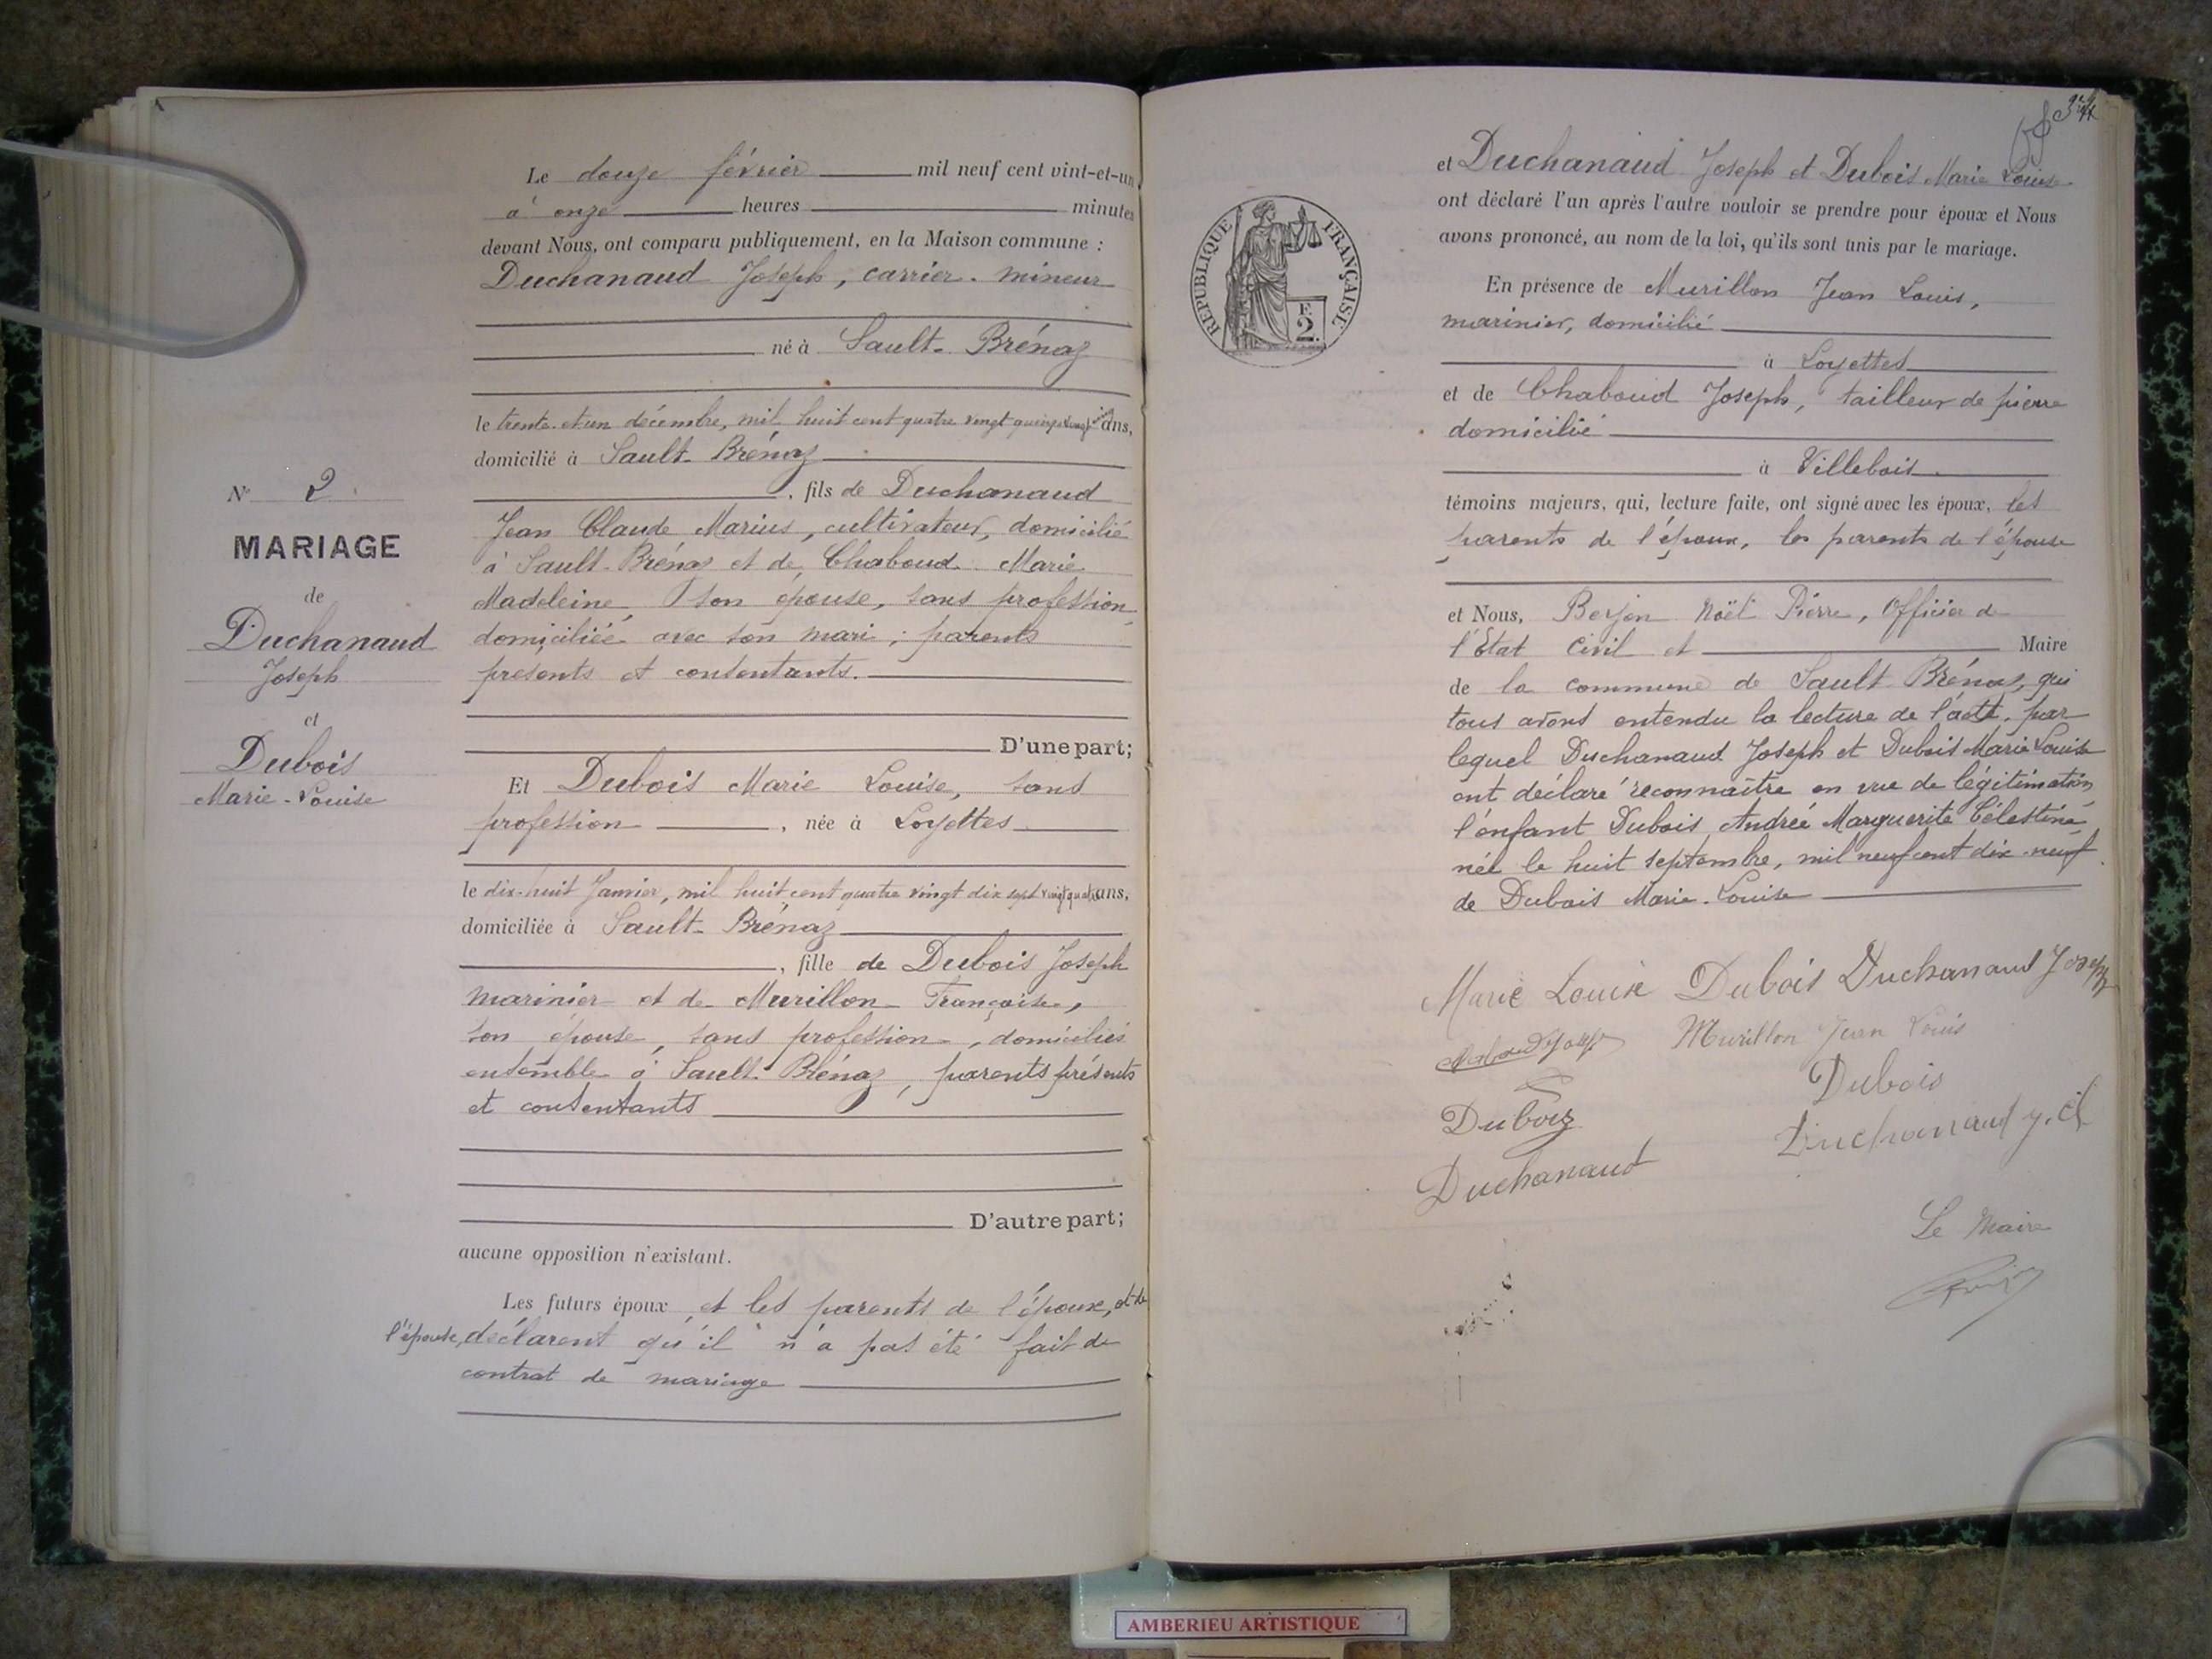 N° 2
MARIAGE
de
Duchanaud
Joseph
et
Dubois
Marie-Louise
Le douze février mil neuf cent vint-et-un
à onze heures minutes
devant Nous, ont comparu publiquement, en la Maison commune :
Duchanaud Joseph, carrier-mineur
né à Sault-Brénaz
le trente-et-un décembre, mil huit cent quatre vingt quinze vingt cinq ans,
domicilié à Sault-Brénaz
, fils de Duchanaud
Jean Claude Marius, cultivateur, domicilié
à Sault-Brénaz et de Chaboud Marie
Madeleine, son épouse, sans profession,
domiciliée avec son mari ; parents
presents et consentants.
D'une part;
Et Dubois Marie Louise, sans
profession , née à Loyettes
le dix-huit Janvier, mil huit cent quatre vingt dix sept vingt quatre ans,
domiciliée à Sault-Brénaz
, fille de Dubois Joseph
marinier et de Murillon Françoise,
son épouse, sans profession, domiciliés
ensemble à Sault-Brénaz, parents présents
et consentants
D'autre part;
aucune opposition n'existant.
Les futurs époux et les parents de l'époux, et de
l'épouse, déclarent qu'il n'a pas été fait de
contrat de mariage
34
RÉPUBLIQUE FRANÇAISE
F.
2.
et Duchanaud Joseph et Dubois Marie Louise
ont déclaré l'un après l'autre vouloir se prendre pour époux et Nous
avons prononcé, au nom de la loi, qu'ils sont unis par le mariage.
En présence de Murillon Jean Louis,
marinier, domicilié
à Loyettes
et de Chaboud Joseph, tailleur de pierre
domicilié
à Villebois.
témoins majeurs, qui, lecture faite, ont signé avec les époux, les
parents de l'époux, les parents de l'épouse
et Nous, Berjon Noël Pierre, Officier de
l'Etat Civil et Maire
de la commune de Sault-Brénaz, qui
tous avons entendu la lecture de l'acte, par
lequel Duchanaud Joseph et Dubois Marie Louise
ont déclaré reconnaître en vue de légitimation
l'enfant Dubois Andrée Marguerite Célestine
née le huit septembre, mil neuf cent dix-neuf
de Dubois Marie-Louise
Marie Louise Dubois Duchanaud Joseph
Chaboud Joseph Murillon Jean Louis
Dubois
Duboiz
Duchanaud J. Cl
Duchanaud
Le Maire
AMBERIEU ARTISTIQUE